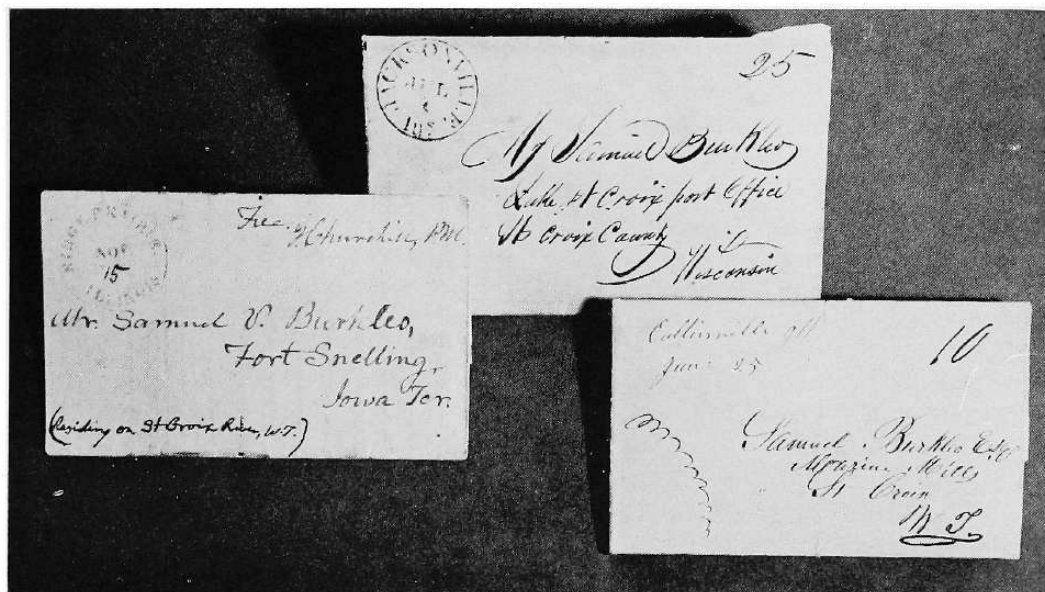 JACKSONVILLE, Ill.
JUL
25
Mr Samuel Burkleo
Lake St Croix post Office
St Croix County
Wisconsin Tr
RIDGE PRAIRIE
NOV
15
ILLINOIS
Free.
Churchill, P.M.
Mr. Samuel V. Burkleo,
Fort Snelling,
Iowa Ter.
(Residing on St Croix River, W.T.)
Collinsville Ill
June 25
10
Samuel Burkleo Esqr
Marine Mills
St Croix
W T.